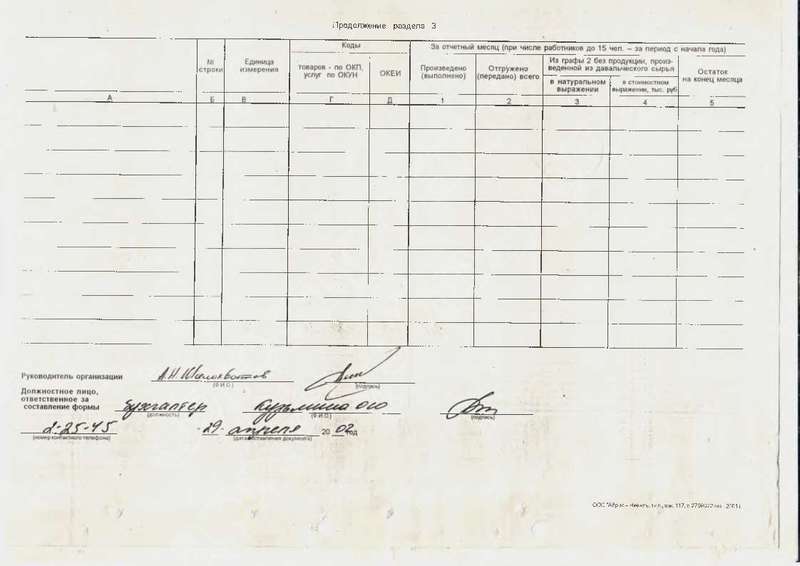 Продолжение раздела 3
Коды
За отчетный месяц (при числе работников до 15 чел. – за период с начала года)
№ строки
Единица измерения
товаров - по ОКП, услуг по ОКУН
ОКЕИ
Произведено (выполнено)
Отгружено (передано) всего
Из графы 2 без продукции, произведенной из давальческого сырья
в натуральном выражении
в стоимостном выражении, тыс. руб
Остаток на конец месяца
А Б В Г Д 1 2 3 4 5
Руководитель организации А.Н.
(Ф.И.О) (подпись)
Должностное лицо,
ответственное за
составление формы бухгалтер Кузьмина
(должность) (Ф.И.О) (подпись)
2-25-45 29 апреля 20 02 год
(номер контактного телефона) (дата составления документа)
ООО